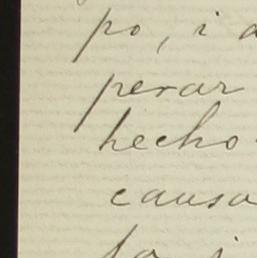 po, i a
perar
hecho
causa